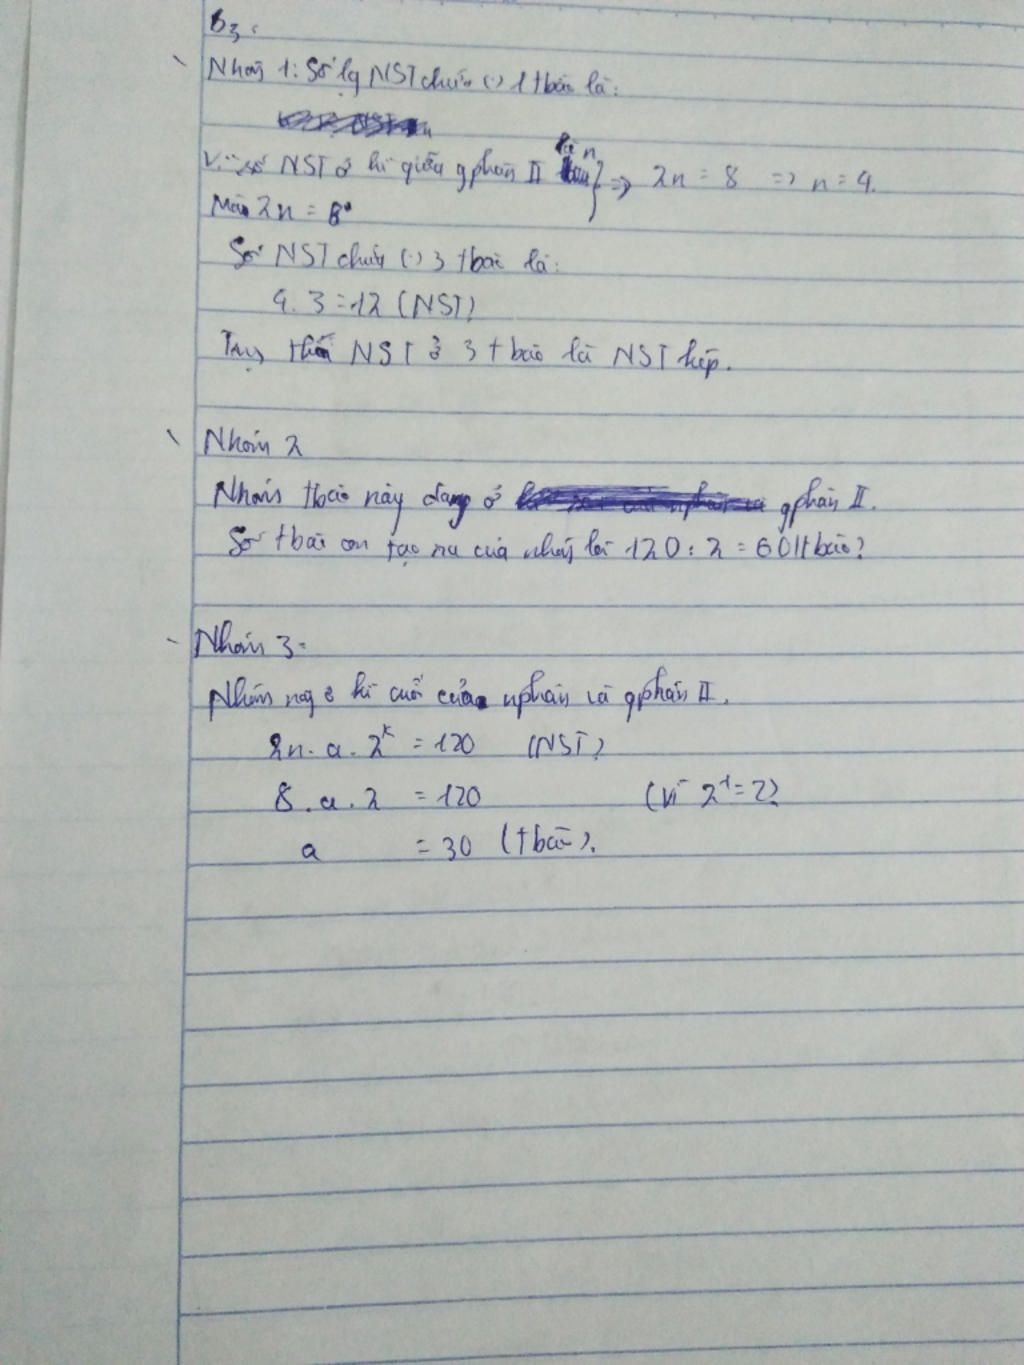 B3.
Nhóm 1: Số lg NST chứa (.) 1 tbào là:
Vì số NST ở kì giữa gphân II là n } => 2n = 8 => n = 4.
Mà 2n = 8
Số NST chứa (.) 3 tbào là:
4. 3 = 12 (NST)
NST ở 3 tbào là NST kép.
Nhóm 2
Nhóm tbào này đang ở gphân II.
Số tbào con tạo ra của nhóm là 120 : 2 = 60 (tbào)
Nhóm 3:
Nhóm này ở kì cuối của nphân và gphân II.
2n. a. 2^k = 120 (NST)
8. a. 2 = 120 (Vì 2^1 = 2)
a = 30 (tbào).